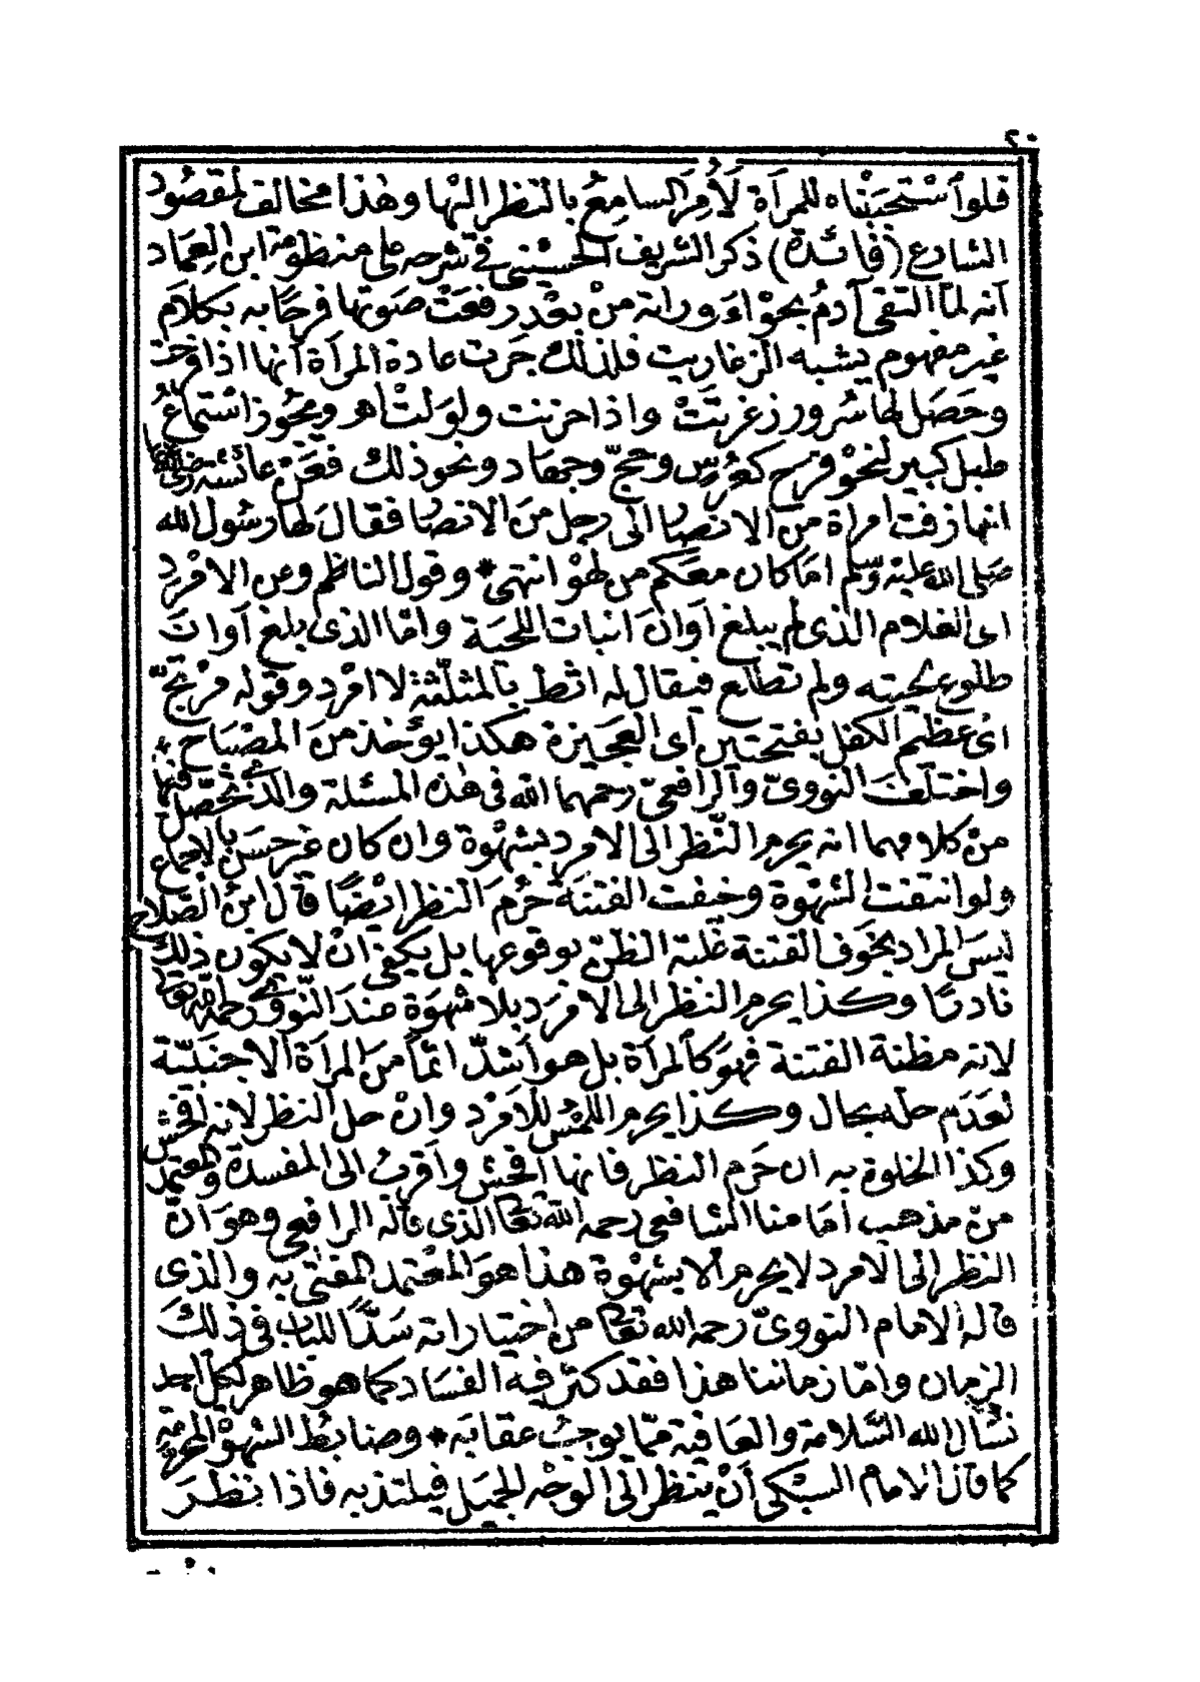 ٢٠
فلو استحبيناه للمرأة لأمر السامع بالنظر اليها وهذا مخالف لمقصود
الشارع (فائدة) ذكر الشريف الحسيني في شرحه على منظومة ابن العماد
أنه لما التقى آدم بحواء وراته من بعد رفعت صوتها فرحا به بكلام
غير مفهوم يشبه الزغاريت فلذلك جرت عادة المرأة أنها اذا فرحت
وحصل لها سرور زغرتت واذا حزنت ولولت اهـ ويجوز استماع
طبل كبير لنحو فرح كعرس وحج وجهاد ونحو ذلك فعن عائشة رضي الله عنها
انها زفت امراة من الانصار الى رجل من الانصار فقال لها رسول الله
صلى الله عليه وسلم اما كان معكم من لهو انتهى * وقول الناظم وعن الامرد
اى الغلام الذى لم يبلغ أوان انبات اللحية واما الذى بلغ أوان
طلوع لحيته ولم تطلع فيقال له اثط بالمثلثة لا امرد وقوله مرتج
اى عظيم الكفل بفتحتين أى العجيزة هكذا يؤخذ من المصباح *
واختلف النووى والرافعى رحمهما الله فى هذه المسئلة والذى تحصل فيها
من كلامهما انه يحرم النظر الى الامرد بشهوة وان كان غير حسن بالاجماع
ولو انتفت الشهوة وخيفت الفتنة حرم النظر ايضا قال ابن الصلاح
ليس المراد بخوف الفتنة غلبة الظن بوقوعها بل يكفى ان لا يكون ذلك
نادرا وكذا يحرم النظر الى الامرد بلا شهوة عند النووى رحمه الله تعالى
لانه مظنة الفتنة فهو كالمرأة بل هو أشد اثما من المرأة الاجنبية
لعدم حله بحال وكذا يحرم اللمس للامرد وان حل النظر لانه افحش
وكذا الخلوة به ان حرم النظر فانها افحش واقرب الى المفسدة والمعتمد
من مذهب امامنا الشافعى رحمه الله تعالى الذى قاله الرافعى وهو ان
النظر الى الامرد لا يحرم الا بشهوة هذا هو المعتمد المفتى به والذى
قاله الامام النووى رحمه الله تعالى من اختياراته سدا للباب فى ذلك
الزمان واما زماننا هذا فقد كثر فيه الفساد كما هو ظاهر لكل احد
نسأل الله السلامة والعافية مما يوجب عقابه * وضابط الشهوة المحرمة
كما قال الامام السبكى أن ينظر الى الوجه الجميل فيلتذ به فاذا نظر